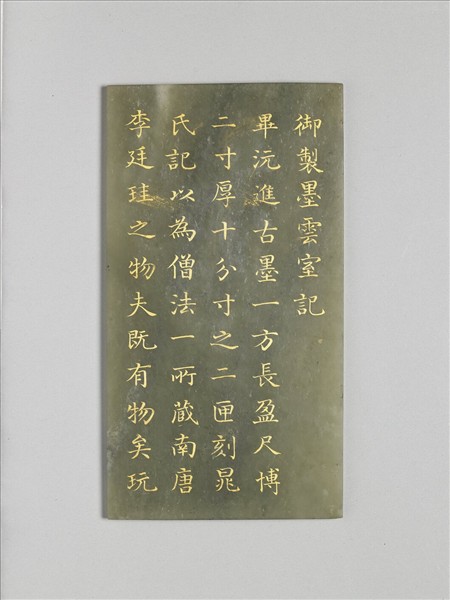 御製墨雲室記
畢沅進古墨一方長盈尺博
二寸厚十分寸之二匣刻晁
氏記以為僧法一所蔵南唐
李廷珪之物夫既有物矣玩